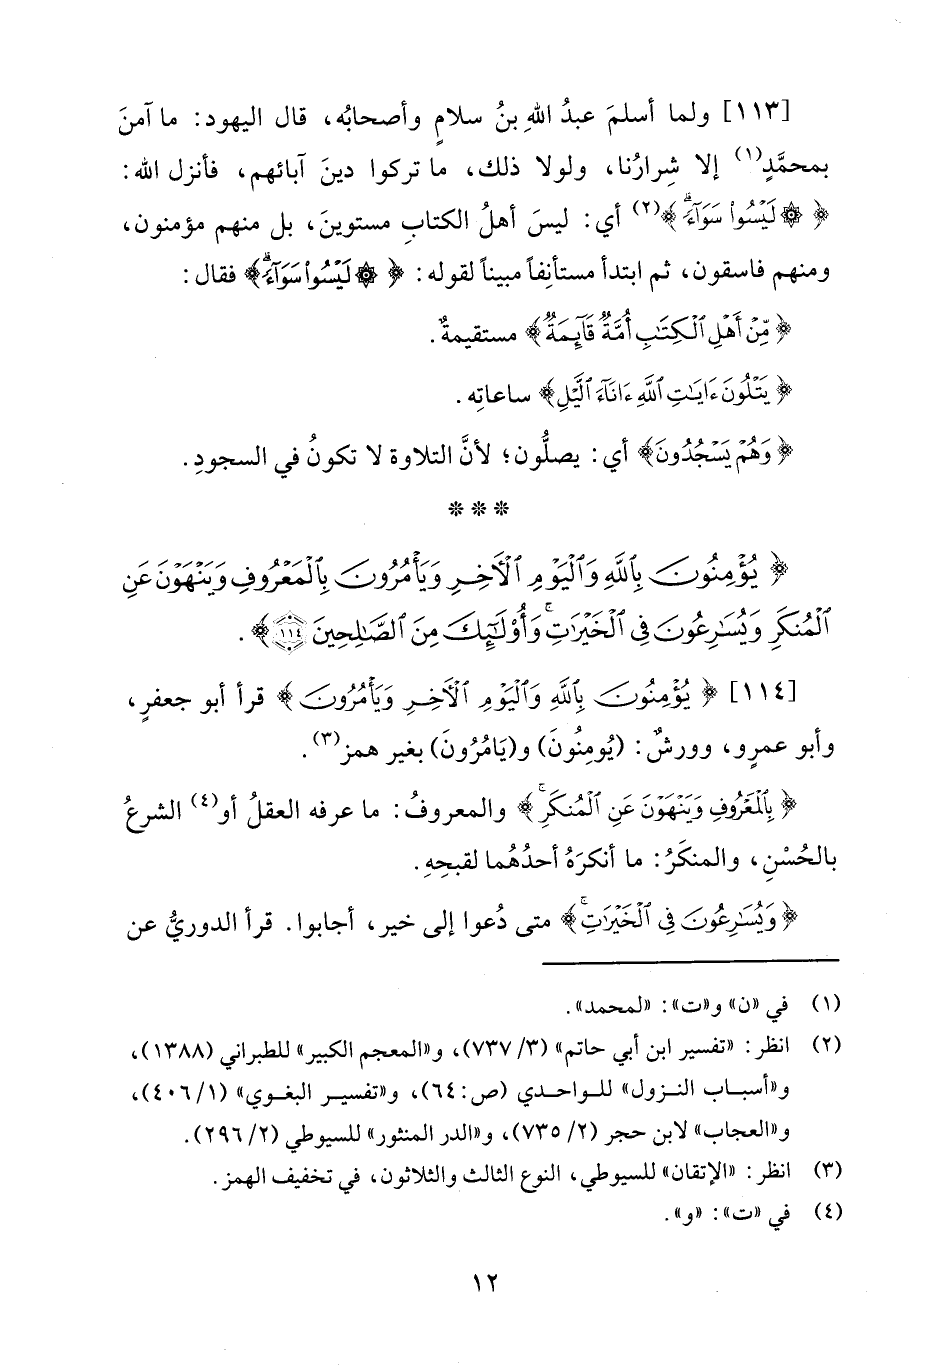 [١١٣] ولما أسلمَ عبدُ اللهِ بنُ سلامٍ وأصحابُه، قال اليهود: ما آمنَ
بمحمَّدٍ(١) إلا شِرارُنا، ولولا ذلك، ما تركوا دينَ آبائهم، فأنزل الله:
﴿ ۞ لَيْسُوا۟ سَوَآءً ۗ ﴾(٢) أي: ليسَ أهلُ الكتابِ مستوينَ، بل منهم مؤمنون،
ومنهم فاسقون، ثم ابتدأ مستأنِفاً مبيناً لقوله: ﴿ ۞ لَيْسُوا۟ سَوَآءً ۗ ﴾ فقال:
﴿ مِّنْ أَهْلِ ٱلْكِتَٰبِ أُمَّةٌ قَآئِمَةٌ ﴾ مستقيمةٌ.
﴿ يَتْلُونَ ءَايَٰتِ ٱللَّهِ ءَانَآءَ ٱلَّيْلِ ﴾ ساعاتِه.
﴿ وَهُمْ يَسْجُدُونَ ﴾ أي: يصلُّون؛ لأنَّ التلاوة لا تكونُ في السجودِ.
* * *
﴿ يُؤْمِنُونَ بِٱللَّهِ وَٱلْيَوْمِ ٱلْأَخِرِ وَيَأْمُرُونَ بِٱلْمَعْرُوفِ وَيَنْهَوْنَ عَنِ
ٱلْمُنكَرِ وَيُسَٰرِعُونَ فِى ٱلْخَيْرَٰتِ ۚ وَأُو۟لَٰٓئِكَ مِنَ ٱلصَّٰلِحِينَ ١١٤ ﴾ .
[١١٤] ﴿ يُؤْمِنُونَ بِٱللَّهِ وَٱلْيَوْمِ ٱلْأَخِرِ وَيَأْمُرُونَ ﴾ قرأ أبو جعفرٍ،
وأبو عمرٍو، وورشٌ: (يُومِنُونَ) و(يَامُرُونَ) بغير همز(٣).
﴿ بِٱلْمَعْرُوفِ وَيَنْهَوْنَ عَنِ ٱلْمُنكَرِ ۚ ﴾ والمعروفُ: ما عرفه العقلُ أو(٤) الشرعُ
بالحُسْنِ، والمنكَرُ: ما أنكرَهُ أحدُهُما لقبحِهِ.
﴿ وَيُسَٰرِعُونَ فِى ٱلْخَيْرَٰتِ ۚ ﴾ متى دُعوا إلى خير، أجابوا. قرأ الدوريُّ عن
(١) في «ن» و«ت»: «لمحمد».
(٢) انظر: «تفسير ابن أبي حاتم» (٣/ ٧٣٧)، و«المعجم الكبير» للطبراني (١٣٨٨)،
و«أسباب النزول» للواحدي (ص: ٦٤)، و«تفسير البغوي» (١/ ٤٠٦)،
و«العجاب» لابن حجر (٢/ ٧٣٥)، و«الدر المنثور» للسيوطي (٢/ ٢٩٦).
(٣) انظر: «الإتقان» للسيوطي، النوع الثالث والثلاثون، في تخفيف الهمز.
(٤) في «ت»: «و».
١٢